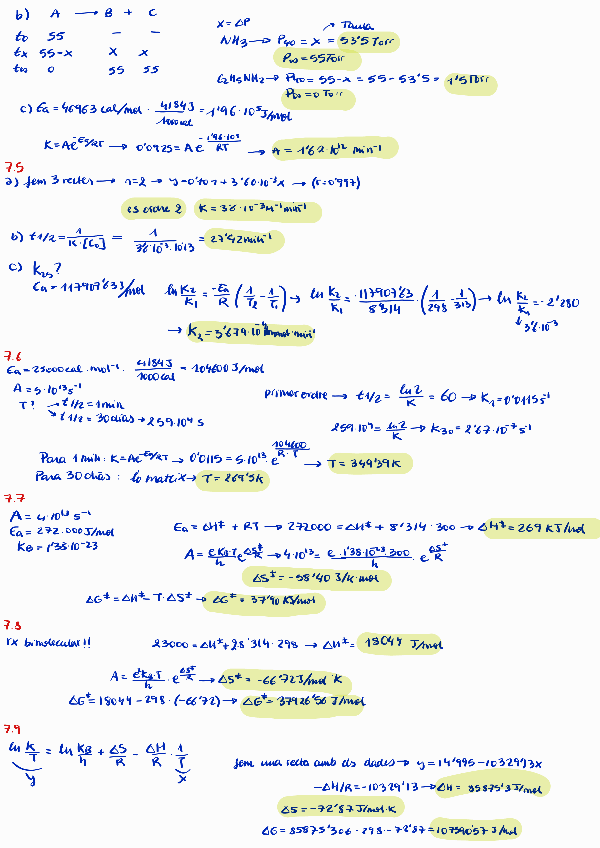 b) A → B + C
x = ΔP → Taula
t0 55 - -
NH3 → P40 = x = 53'5 Torr
tx 55-x x x
P∞ = 55 Torr
t∞ 0 55 55
C2H5NH2 → P40 = 55-x = 55-53'5 = 1'5 Torr
P∞ = 0 Torr
c) Ea = 46963 cal/mol · 4184J/1000cal = 1'96·10⁵ J/mol
K = Ae^-Ea/RT → 0'0925 = A e^-1'96·10⁵/RT → A = 1'62·10¹² min⁻¹
7.5
a) fem 3 rectes → n=2 → y = 0'101 + 3'60·10⁻³x → (r=0'997)
és ordre 2 K = 3'6·10⁻³ M⁻¹ min⁻¹
b) t1/2 = 1/K·[C0] = 1/3'6·10⁻³·10'13 = 27'42 min⁻¹
c) K25?
Ea = 117907'63 J/mol ln K2/K1 = -Ea/R (1/T2 - 1/T1) → ln K2/K1 = -117907'63/8'314 · (1/298 - 1/313) → ln K2/K1 = -2'280
3'6·10⁻³
→ K2 = 3'679·10⁻⁴
7.6
Ea = 25000 cal·mol⁻¹ · 4184J/1000cal = 104600 J/mol
A = 5·10¹³ s⁻¹
primer ordre → t1/2 = ln2/K = 60 → K1 = 0'0115 s⁻¹
T? → t1/2 = 1min
→ t1/2 = 30 dias → 259·10⁴ s
259·10⁴ = ln2/K → K30 = 2'67·10⁻⁷ s⁻¹
Para 1 min: K = Ae^-Ea/RT → 0'0115 = 5·10¹³ · e^104600/R·T → T = 349'39 K
Para 30 dias: lo mateix → T = 269'5 K
7.7
A = 4·10¹³ s⁻¹
Ea = 272.000 J/mol
Ea = ΔH‡ + RT → 272000 = ΔH‡ + 8'314·300 → ΔH‡ = 269 KJ/mol
KB = 1'38·10-23
A = e·KB·T/h e^ΔS‡/R → 4·10¹³ = e·1'38·10⁻²³·300/h · e^ΔS‡/R
ΔS‡ = -58'40 J/K·mol
ΔG‡ = ΔH‡ - T·ΔS‡ → ΔG‡ = 37'90 KJ/mol
7.8
rx bimolecular!!
23000 = ΔH‡ + 2·8'314·298 → ΔH‡ = 18044 J/mol
A = e²KB·T/h · e^ΔS‡/R → ΔS‡ = -66'72 J/mol·K
ΔG‡ = 18044 - 298·(-66'72) → ΔG‡ = 37926'56 J/mol
7.9
ln K/T = ln KB/h + ΔS/R - ΔH/R · 1/T
y x
fem una recta amb els dades → y = 14'995 - 10329'13x
-ΔH/R = -10329'13 → ΔH = 85875'3 J/mol
ΔS = -72'87 J/mol·K
ΔG = 85875'306 - 298·-72'87 = 107590'57 J/mol